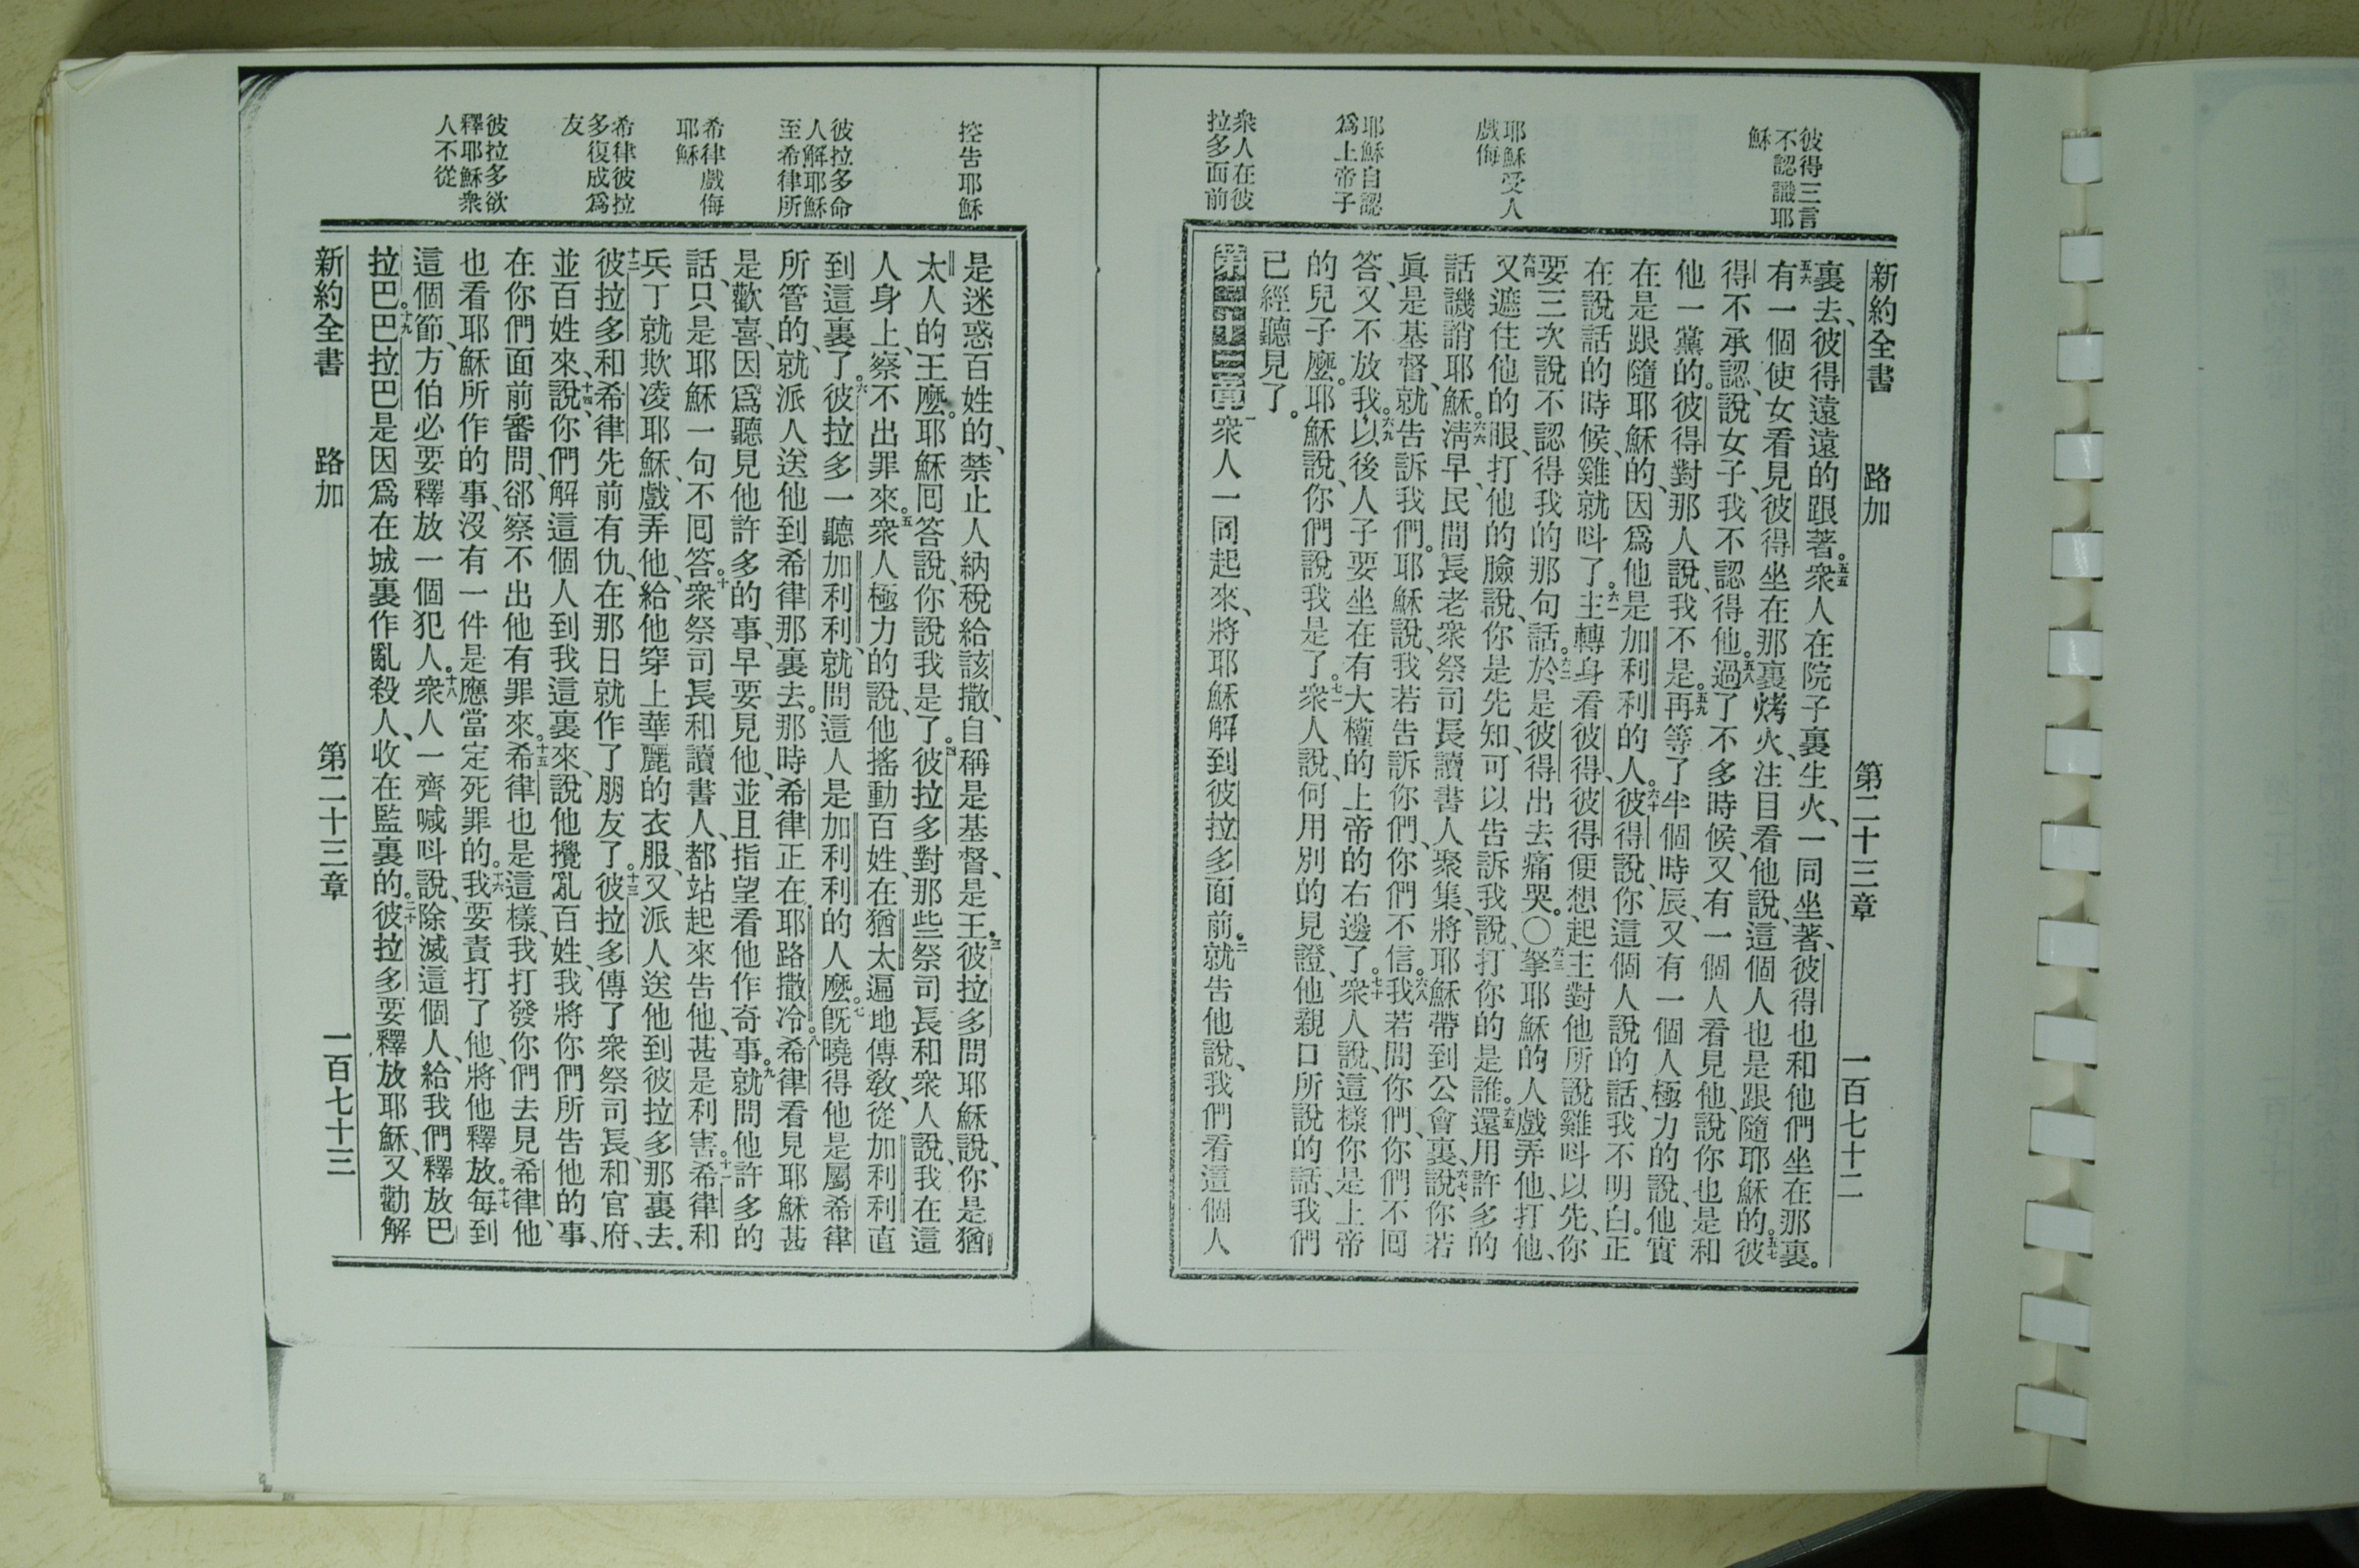 彼得三言
不認識耶
穌
耶穌受人
戲侮
耶穌自認
爲上帝子
衆人在彼
拉多面前
新約全書 路加 第二十三章 一百七十二
裏去、彼得遠遠的跟著。五五衆人在院子裏生火、一同坐著、彼得也和他們坐在那裏。
五六有一個使女看見彼得坐在那裏烤火、注目看他說、這個人也是跟隨耶穌的。五七彼
得不承認、說女子、我不認得他。五八過了不多時候、又有一個人看見他、說你也是和
他一黨的。彼得對那人說、我不是。五九再等了半個時辰、又有一個人極力的說、他實
在是跟隨耶穌的、因爲他是加利利的人。六十彼得說、你這個人說的話、我不明白。正
在說話的時候、雞就呌了。六一主轉身看彼得、彼得便想起主對他所說雞呌以先、你
要三次說不認得我的那句話。六二於是彼得出去痛哭。〇六三拏耶穌的人戲弄他、打他、
六四又遮住他的眼、打他的臉說、你是先知、可以告訴我說、打你的是誰。六五還用許多的
話譏誚耶穌。六六淸早、民間長老衆祭司長讀書人聚集、將耶穌帶到公會裏、六七說、你若
眞是基督、就告訴我們。耶穌說、我若告訴你們、你們不信。六八我若問你們、你們不囘
答、又不放我。六九以後人子要坐在有大權的上帝的右邊了。七十衆人說、這樣你是上帝
的兒子麼。耶穌說、你們說我是了。七一衆人說、何用別的見證、他親口所說的話、我們
已經聽見了。
第二十三章 一衆人一同起來、將耶穌解到彼拉多面前。二就告他說、我們看這個人
控告耶穌
彼拉多命
人解耶穌
至希律所
希律戲侮
耶穌
希律彼拉
多復成爲
友
彼拉多欲
釋耶穌衆
人不從
是迷惑百姓的、禁止人納稅給該撒、自稱是基督、是王。三彼拉多問耶穌說、你是猶
太人的王麼。耶穌囘答說、你說我是了。四彼拉多對那些祭司長和衆人說、我在這
人身上、察不出罪來。五衆人極力的說、他搖動百姓、在猶太遍地傳敎、從加利利直
到這裏了。六彼拉多一聽加利利、就問這人是加利利的人麼。七旣曉得他是屬希律
所管的、就派人送他到希律那裏去。那時希律正在耶路撒冷。八希律看見耶穌甚
是歡喜、因爲聽見他許多的事、早要見他、並且指望看他作奇事。九就問他許多的
話、只是耶穌一句不囘答。十衆祭司長和讀書人、都站起來告他、甚是利害。十一希律和
兵丁就欺凌耶穌、戲弄他、給他穿上華麗的衣服、又派人送他到彼拉多那裏去。
十二彼拉多和希律先前有仇、在那日就作了朋友了。十三彼拉多傳了衆祭司長、和官府、
並百姓來、十四說、你們解這個人到我這裏來、說他攪亂百姓、我將你們所告他的事、
在你們面前審問、郤察不出他有罪來。十五希律也是這樣、我打發你們去見希律、他
也看耶穌所作的事、沒有一件是應當定死罪的。十六我要責打了他、將他釋放。十七每到
這個節、方伯必要釋放一個犯人。十八衆人一齊喊呌說、除滅這個人、給我們釋放巴
拉巴。十九巴拉巴是因爲在城裏作亂殺人、收在監裏的。二十彼拉多要釋放耶穌、又勸解
新約全書 路加 第二十三章 一百七十三